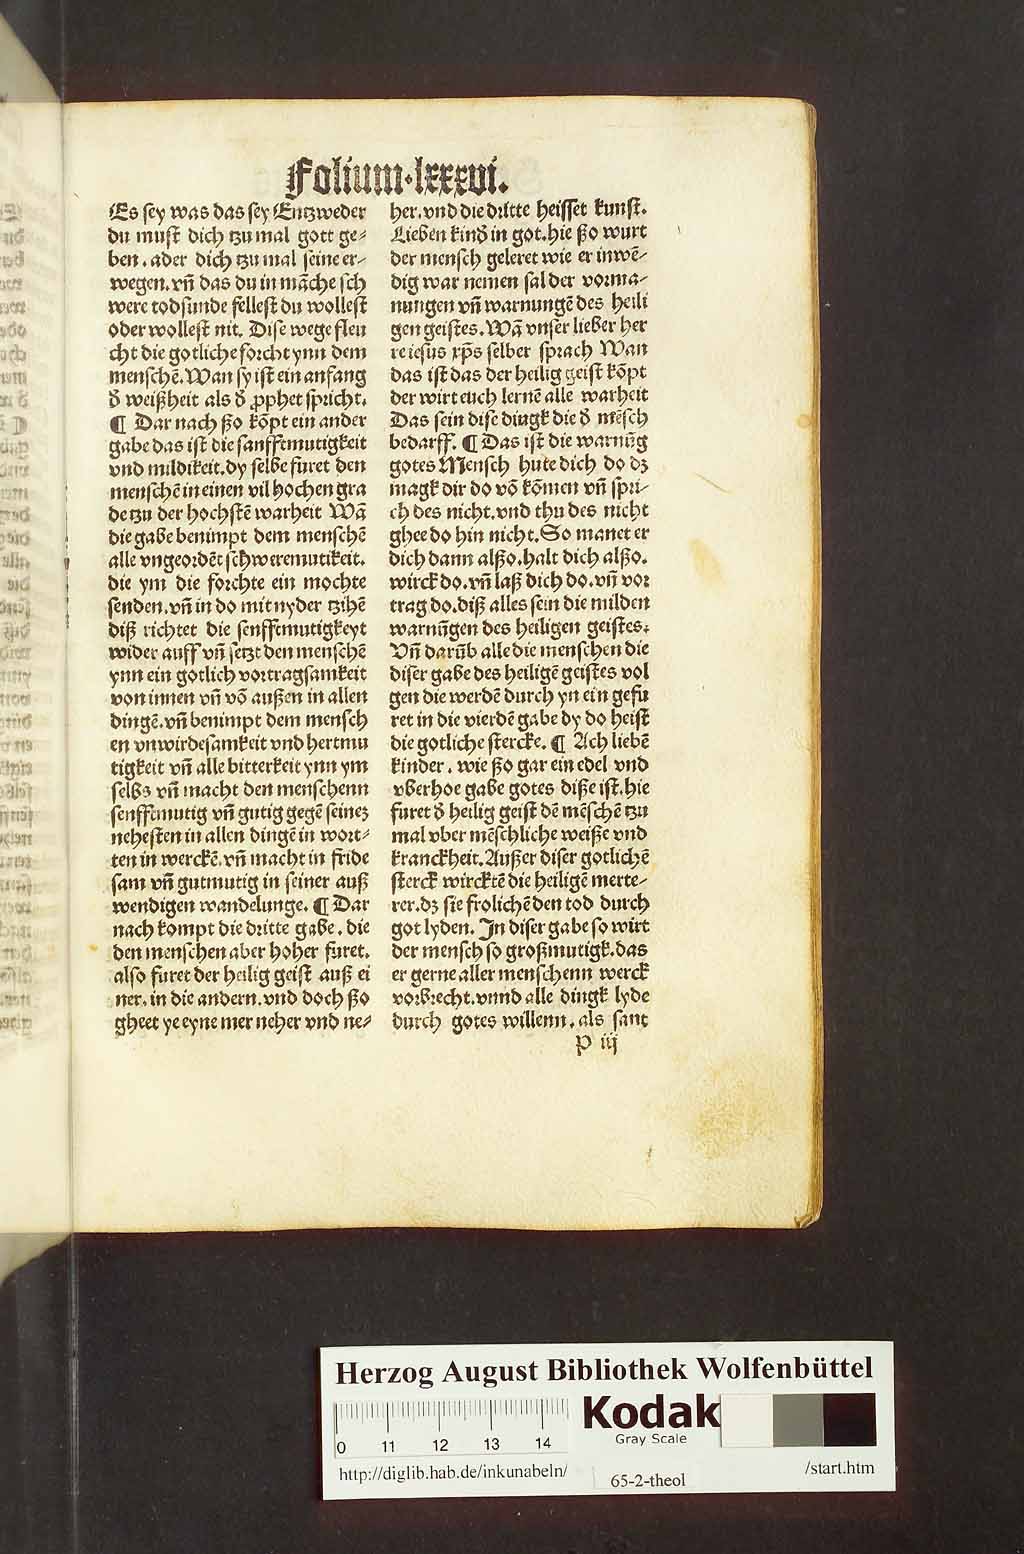 Folium·lxxxvi.
Es sey was das sey Entzweder
du must dich tzu mal gott ge⸗
ben . ader dich tzu mal seine er⸗
wegen. vn̄ das du in māche sch
were todsunde fellest du wollest
oder wollest nit. Dise wege fleu
cht die gotliche forcht ynn dem
menschē. Wan sy ist ein anfang
đ weißheit als đ ꝓphet spricht.
¶ Dar nach ßo kōpt ein ander
gabe das ist die sanfftmutigkeit
vnd mildikeit. dy selbe furet den
menschē in einen vil hochen gra
de tzu der hochstē warheit Wā
die gabe benimpt dem menschē
alle vngeordēt schweremutikeit.
die ym die forchte ein mochte
senden. vn̄ in do mit nyder tzihē
diß richtet die senfftmutigkeyt
wider auff vn̄ setzt den menschē
ynn ein gotlich vortragsamkeit
von innen vn̄ vō außen in allen
dingē. vn̄ benimpt dem mensch
en vnwirdesamkeit vnd hertmu
tigkeit vn̄ alle bitterkeit ynn ym
selbs vn̄ macht den menschenn
senfftmutig vn̄ gutig gegē seineȝ
nehesten in allen dingē in wort⸗
ten in werckē. vn̄ macht in fride
sam vn̄ gutmutig in seiner auß
wendigen wandelunge. ¶ Dar
nach kompt die dritte gabe . die
den menschen aber hoher furet.
also furet der heilig geist auß ei
ner. in die andern. vnd doch ßo
gheet ye eyne mer neher vnd ne⸗
her. vnd die dritte heisset kunst.
Lieben kinđ in got. hie ßo wurt
der mensch geleret wie er inwē⸗
dig war nemen sal der vorma⸗
nungen vn̄ warnungē des heili
gen geistes. Wā vnser lieber her
re iesus xp̄s selber sprach Wan
das ist das der heilig geist kōpt
der wirt euch lernē alle warheit
Das sein dise dingk die đ mēsch
bedarff. ¶ Das ist die warnūg
gotes Mensch hute dich do dȝ
magk dir do vō kōmen vn̄ spri⸗
ch des nicht. vnd thu des nicht
ghee do hin nicht. So manet er
dich dann alßo. halt dich alßo.
wirck do. vn̄ laß dich do. vn̄ vor
trag do. diß alles sein die milden
warnūgen des heiligen geistes.
Vn̄ darūb alle die menschen die
diser gabe des heiligē geistes vol
gen die werdē durch yn ein gefu
ret in die vierdē gabe dy do heist
die gotliche stercke. ¶ Ach liebē
kinder . wie ßo gar ein edel vnd
vberhoe gabe gotes diße ist. hie
furet đ heilig geist dē mēschē tzu
mal vber mēschliche weiße vnd
kranckheit. Außer diser gotlichē
sterck wircktē die heiligē merte⸗
rer. dȝ sie frolichē den tod durch
got lyden. In diser gabe so wirt
der mensch so großmutigk. das
er gerne aller menschenn werck
vorbrecht. vnnd alle dingk lyde
durch gotes willenn . als sant
P iij
Herzog August Bibliothek Wolfenbüttel
0 11 12 13 14
Kodak
Gray Scale
http://diglib.hab.de/inkunabeln/
65-2-theol
/start.htm